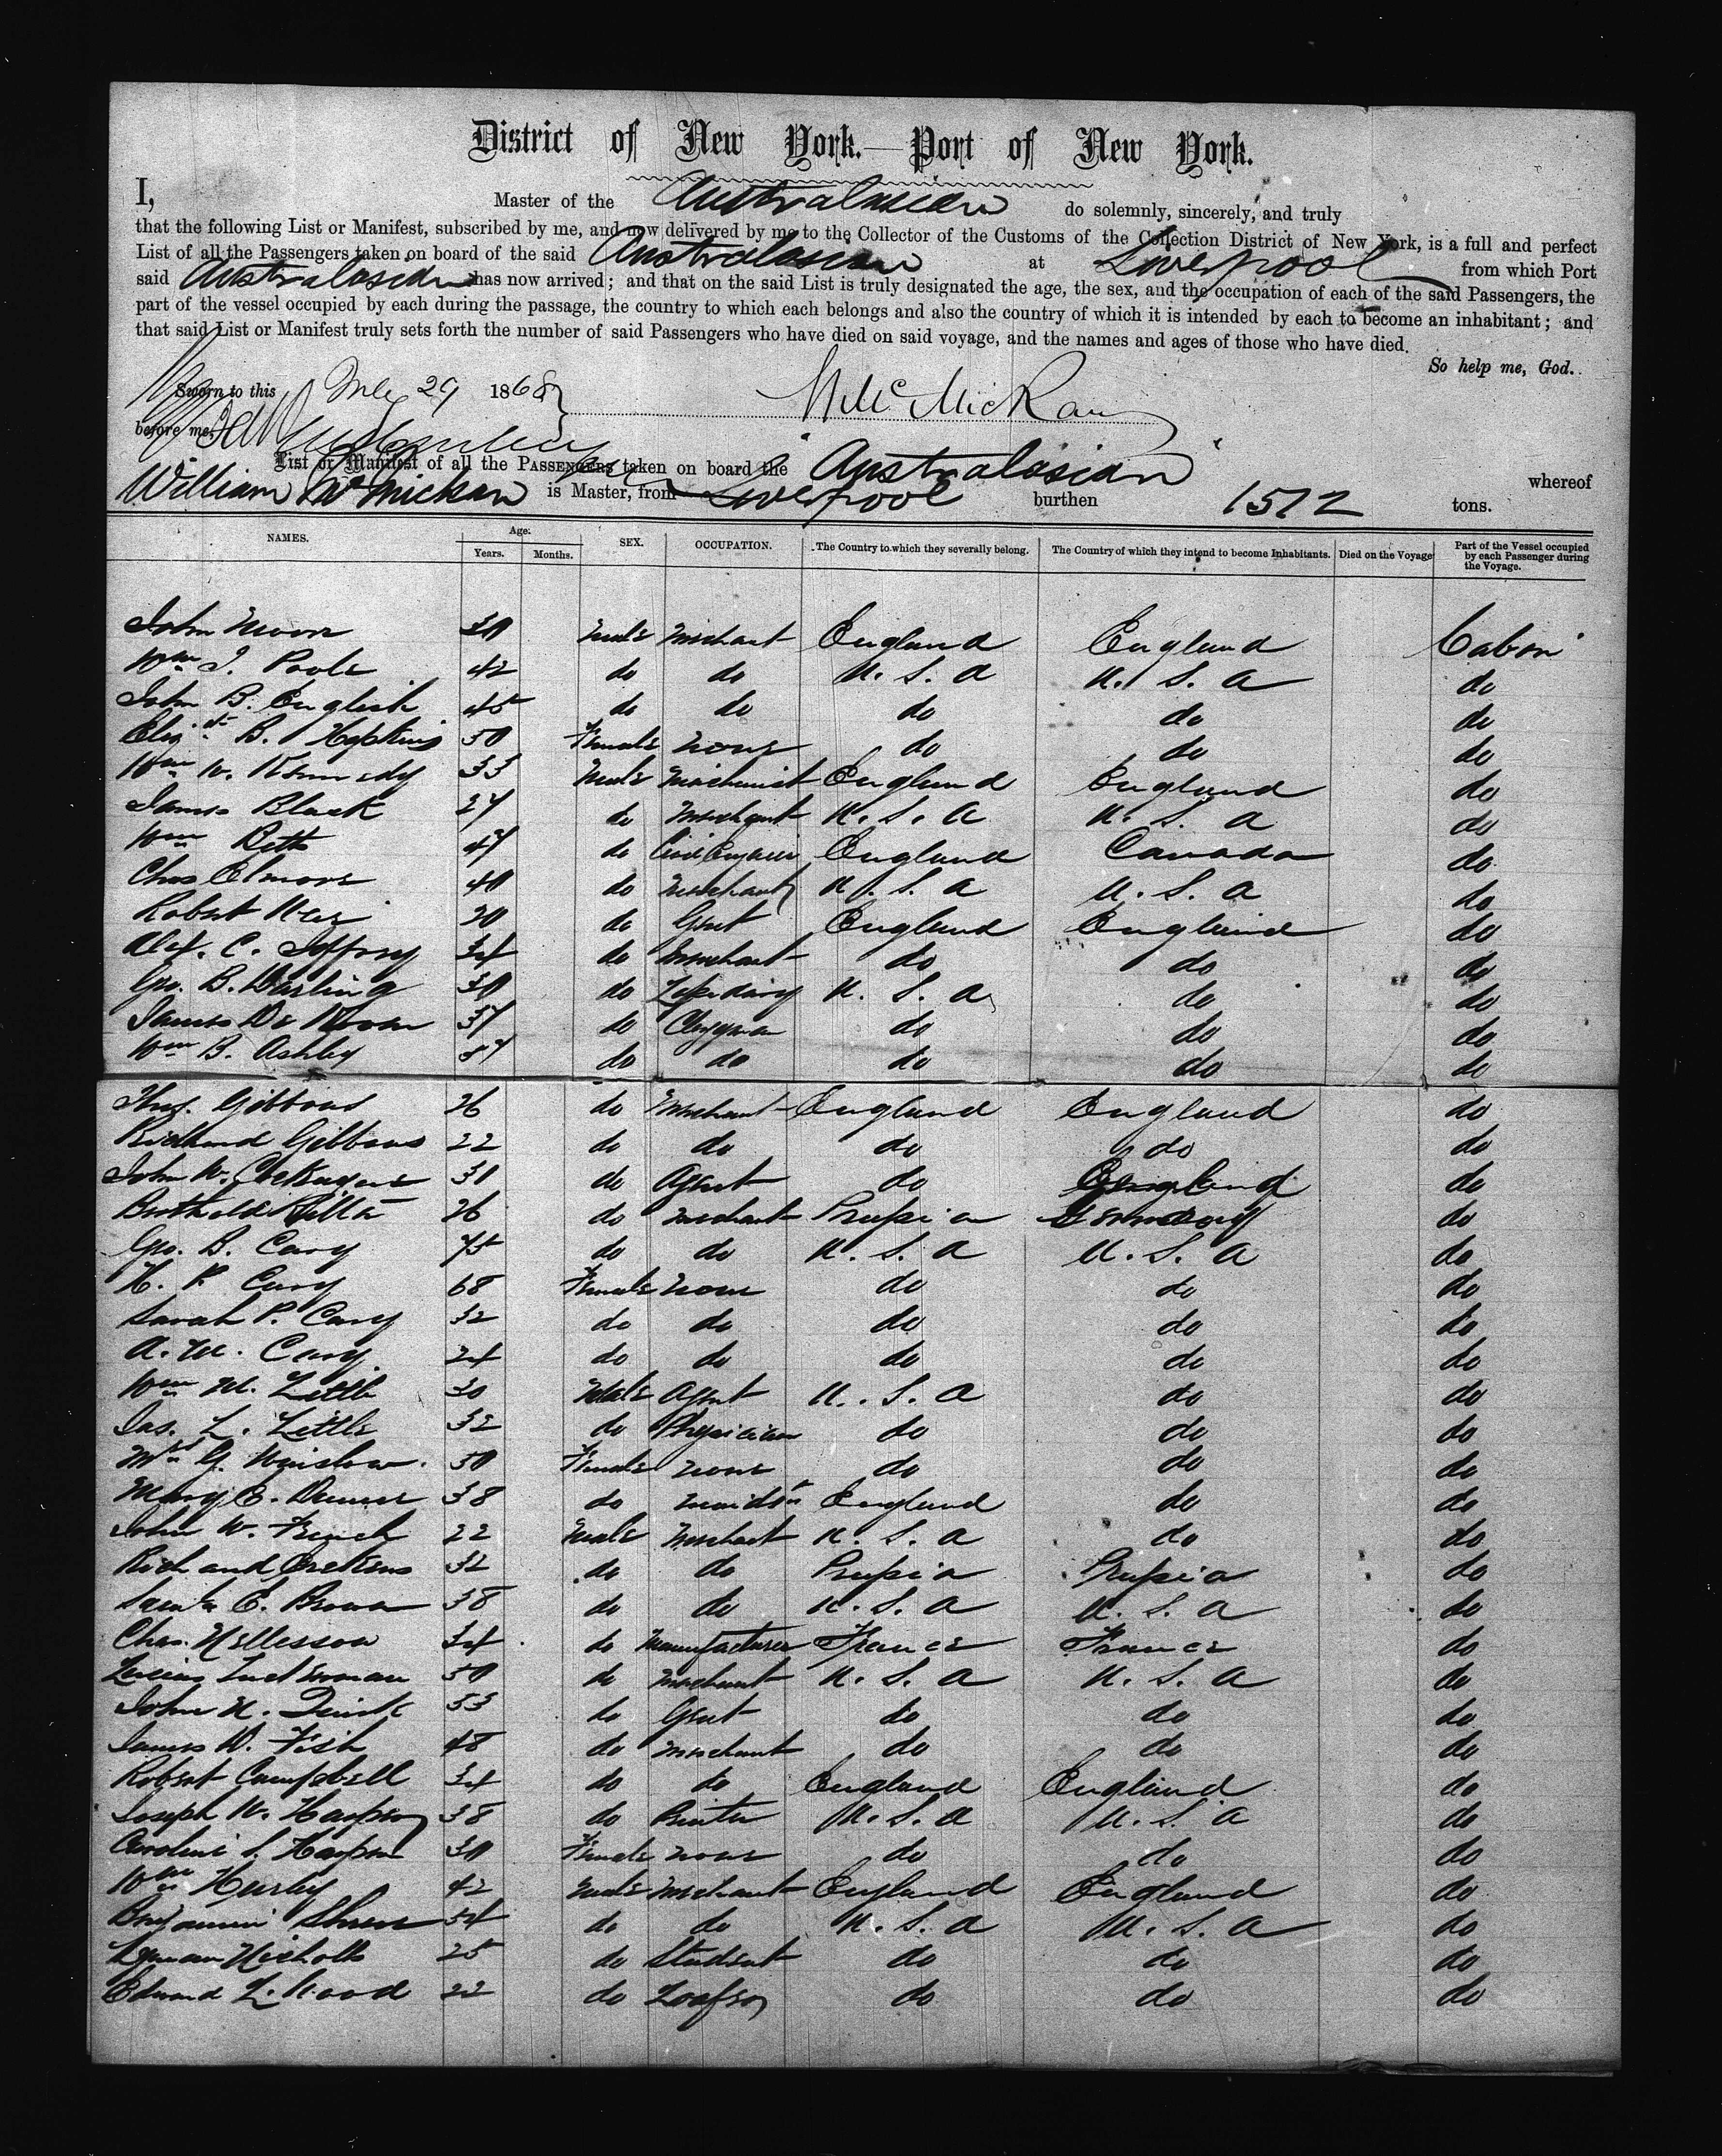 District of New York.—Port of New York.
I, Master of the Australasian do solemnly, sincerely, and truly
that the following List or Manifest, subscribed by me, and now delivered by me to the Collector of the Customs of the Collection District of New York, is a full and perfect
List of all the Passengers taken on board of the said Australasian at Liverpool from which Port
said Australasian has now arrived; and that on the said List is truly designated the age, the sex, and the occupation of each of the said Passengers, the
part of the vessel occupied by each during the passage, the country to which each belongs and also the country of which it is intended by each to become an inhabitant; and
that said List or Manifest truly sets forth the number of said Passengers who have died on said voyage, and the names and ages of those who have died.
So help me, God.
Sworn to this 29 1868
before me,
List or Manifest of all the PASSENGERS taken on board the Australasian whereof
William McMickan is Master, from Liverpool burthen 1512 tons.
NAMES. Age. Years. Months. SEX. OCCUPATION. The Country to which they severally belong. The Country of which they intend to become Inhabitants. Died on the Voyage Part of the Vessel occupied by each Passenger during the Voyage.
John Moore 30 Male Merchant England England Cabin
Wm J. Poole 42 do do U.S.A U.S.A do
John B. English 45 do do do do do
Elizth B. Hopkins 50 Female none do do do
Wm W. Kennedy 33 Male England England do
James Black 27 do Merchant U.S.A U.S.A do
Wm do Civil Engineer England Canada do
Chas Elmore 40 do Merchant U.S.A U.S.A do
Robert do Gent England England do
Alex. C. 34 do Merchant do do do
Geo. B. Darling 30 do U.S.A do do
James De 37 do Clergyman do do do
Wm B. Ashley do do do do do
Thos. Gibbons 26 do Merchant England England do
Richard Gibbons 22 do do do do do
John W. do Agent do England do
Berthold 26 do Merchant Prussia Germany do
Geo. B. Cary 75 do do U.S.A U.S.A do
H. P. Cary 68 Female none do do do
Sarah P. Cary 32 do do do do do
A. M. Cary 24 do do do do do
Wm M. Little 30 Male Agent U.S.A do do
Jas. L. Little 32 do Physician do do do
Mrs G. Winslow 50 Female none do do do
Mary E. 38 do England do do
John W. French 22 Male Merchant U.S.A do do
Richard 32 do do Prussia Prussia do
E. Brown 38 do do U.S.A U.S.A do
Chas. 34 do Manufacturer France France do
Lucius 50 do Merchant U.S.A U.S.A do
John H. 53 do Gent do do do
James D. Fish 48 do Merchant do do do
Robert Campbell 34 do do England England do
Joseph W. Harper 38 do Printer U.S.A U.S.A do
Caroline S. Harper 30 Female none do do do
Wm Hurley 42 Male Merchant England England do
Benjamin 54 do do U.S.A U.S.A do
Lyman Nichols 25 do Student do do do
Edward L. Wood 22 do Loafer do do do